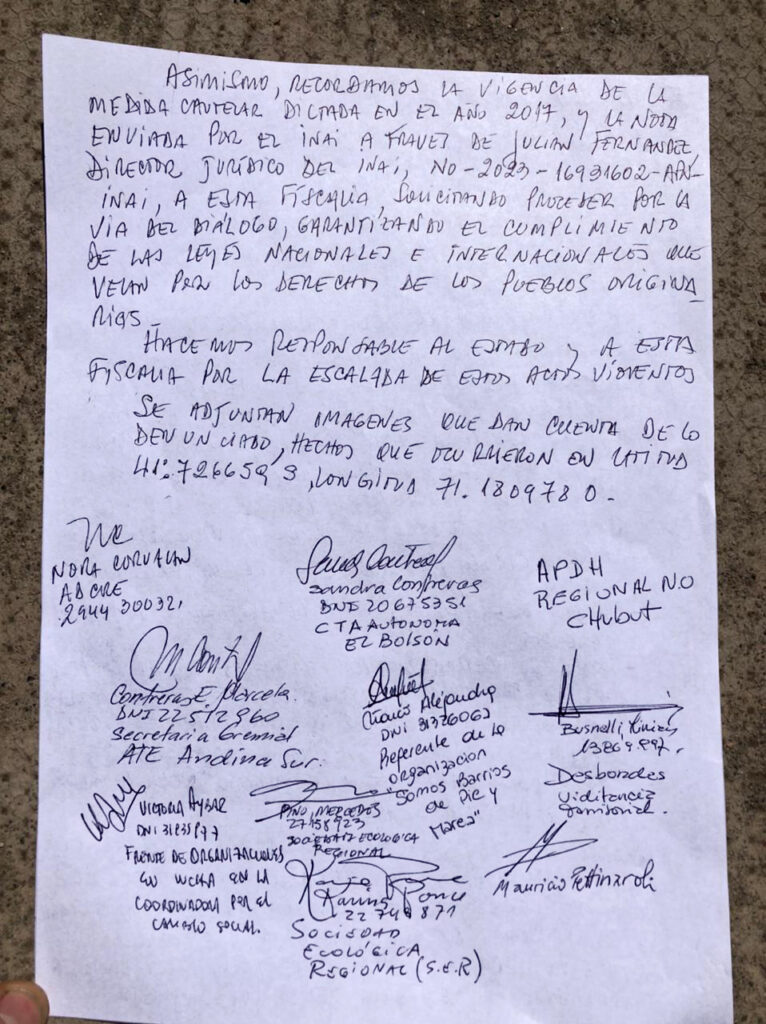 ASIMISMO, RECORDAMOS LA VIGENCIA DE LA
MEDIDA CAUTELAR DICTADA EN EL AÑO 2017, y LA NOTA
ENVIADA POR EL INAI A TRAVES DE JULIAN FERNANDEZ
DIRECTOR JURÍDICO DEL INAI, NO-2023-16931602-APN-
INAI, A ESTA FISCALIA, SOLICITANDO PROCEDER POR LA
VIA DEL DIÁLOGO, GARANTIZANDO EL CUMPLIMIENTO
DE LAS LEYES NACIONALES E INTERNACIONALES QUE
VELAN POR LOS DERECHOS DE LOS PUEBLOS ORIGINA_
RIOS_
HACEMOS RESPONSABLE AL ESTADO y A ESTA
FISCALIA POR LA ESCALADA DE ESTOS ACTOS VIOLENTOS
SE ADJUNTAN IMAGENES QUE DAN CUENTA DE LO
DENUNCIADO, HECHOS QUE OCURRIERON EN LATITUD
41°.7266593, LONGITUD 71.1809780.
NORA CORVALAN
2944 30032.
Sandra Contreras
DNI 20675351
CTA AUTONOMA
EL BOLSÓN
APDH
REGIONAL N.O
CHubut
Contreras E. Marcela.
DNI 22512960
Secretaria Gremial
ATE Andina Sur.
Alejandra
DNI 31326063
Referente de la
organizacion
"Somos Barrios
de Pie y
Marea"
Busnelli,
13869897.
Desbordes
VICTORIA AYBAR
FRENTE DE ORGANIZACIONES
EN LUCHA EN LA
COORDINADORA POR EL
CAMBIO SOCIAL.
PINO, MERCEDES
27158923
SOCIEDAD ECOLOGICA
REGIONAL
Karina Ponce
22 749 871
SOCIEDAD
ECOLÓGICA
REGIONAL (S.E.R)
Mauricio Pettinaroli